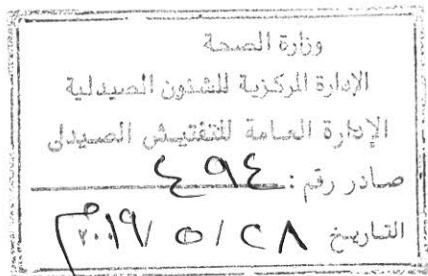 وزارة الصحة
الإدارة المركزية للشئون الصيدلية
الإدارة العامة للتفتيش الصيدلى
صادر رقم : ٤٩٤
التاريخ ٢٨ / ٥ / ٢٠١٩م